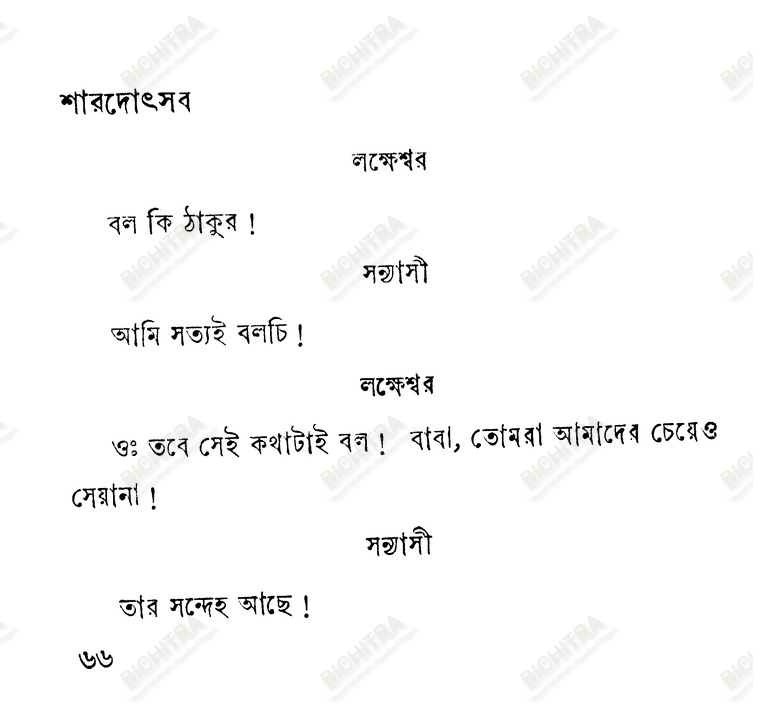 শারদোৎসব
লক্ষেশ্বর
বল কি ঠাকুর !
সন্ন্যাসী
আমি সত্যই বলচি !
লক্ষেশ্বর
ওঃ তবে সেই কথাটাই বল ! বাবা, তোমরা আমাদের চেয়েও
সেয়ানা !
সন্ন্যাসী
তার সন্দেহ আছে !
৬৬